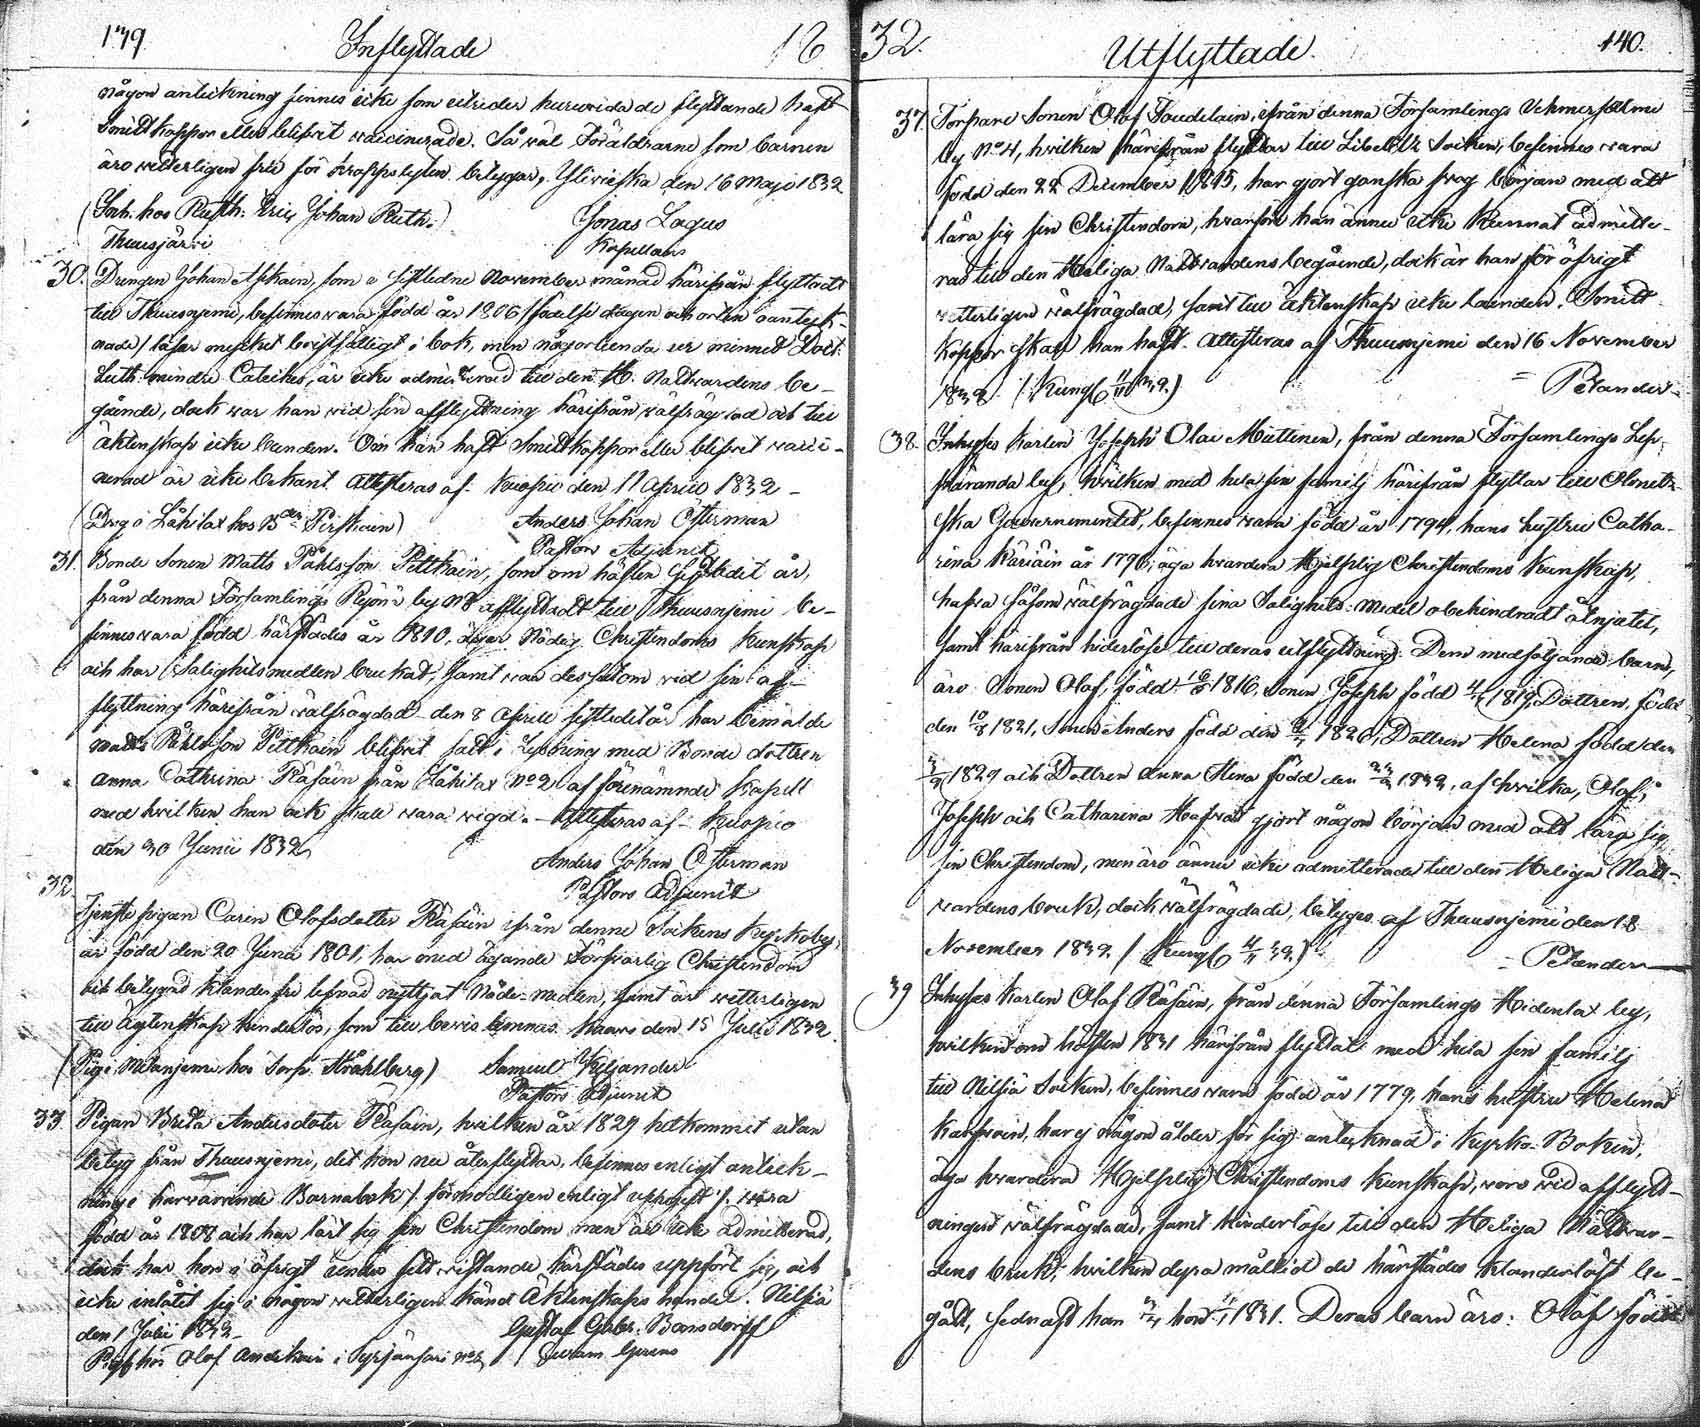 139 Inflyttade 18
någon anteckning finnes icke som utvider huruvida de flyttande haft
Smittkoppor eller blifvit vaccinerade. Så väl Föräldrarne som barnen
äro wetterligen frie för kroppslyten betygar, Ylivieska den 16 Maji 1832
(Inh. hos Rusth: Eric Johan Ruth.) Jonas Lagus
Thuusjärvi Kapellans
30. Drengen Johan, som i sistledne November månad härifrån flyttadt
till Thuusnjemi, befinnes vara född år 1806 / födelse dagen och orten oanteck-
nade / läser mycket bristfälligt i bok, men någorlunda ur minnet Doct:
Luth: mindre Cateches, är icke admitterad till den H. Nattvardens be-
gående, dock var han vid sin afflyttning härifrån välfrägdad och till
äktenskap icke bunden. Om han haft Smittkoppor eller blifvit vacci-
nerad är icke bekant. Attesteras af. Kuopio den 11 April 1832 -
(Dreng i Låkilax hos Bden) Anders Johan Österman
Pastors Adjunct
31. Bonde Sonen Matts Påhlsson Pitkäin, som om hösten sistledit år,
från denna Församlings by No 8 afflyttadt till Thuusnjemi be-
finnes vara född härstädes år 1810, äger Nödig Christendoms Kunskap
och har Salighetsmedlen brukat, samt var dessutom vid sin af-
flyttning härifrån välfrägdad den 8 April sistledit år har bemälde
Matts Påhlsson Pitkäin blifvit satt i Lysning med Bonde dottren
Anna Cathrina Räsäin från Låkilax No 2 af förenämnde Kapell
med hvilken han ock skall vara vigd. - Attesteras af - Kuopio
den 30 Junii 1832
Anders Johan Österman
Pastors Adjunct
32.
Tjenste pigan Carin Olofsdotter Räsäin ifrån denne Sockens
är född den 20 Junii 1801, har med ägande Försvarlig Christendom
och betygad klanderfri lefnad nyttjat Nåde-medlen, samt är wetterligen
till Ägtenskap hinderlös, som till bevis lemnas. Kaavi den 15 Julii 1832
(Pig i hos Torp. Stråhlberg) Samuel Kiljander
Pastors Adjunct
33 Pigan Brita Andersdotter Räsäin, hvilken år 1829 hitkommit utan
betyg från Thuusnjemi, dit hon nu återflyttar, befinnes enligt anteck-
ning i härvarande Barnabok / förmodligen enligt uppgift / vara
född år 1808 och har lärt sig sin Christendom men är icke admitterad,
dock har hon i öfrigt under sitt vistande härstädes uppfört sig, och
icke inlåtit sig i någon wetterligen känd Äktenskaps handel. Nilsiä
den 1 Julii 1832 Gustaf Gabr. Bonsdorff
Pig hos Olof i Syrjänsari No 2
32. Utflyttade. 140.
37. Torpare Sonen Olof, ifrån denna Församlings
by No 4, hvilken härifrån flyttar till Libelitz Socken, befinnes vara
född den 22 December 1815, har gjort ganska svag början med att
lära sig sin Christendom, hvarföre han ännu icke kunnat admitte-
ras till den Heliga Nattvardens begående, dock är han för öfrigt
wetterligen välfrägdad, samt till äktenskap icke bunden. Smitt-
koppor skall han haft. Attesteras af Thuusnjemi den 16 November
1832. Petander.
38. Inhyses Karlen Joseph Olai Miettinen, från denna Församlings Lep-
päranda by, hvilken med hela sin familj härifrån flyttar till Olonetz-
ska Gouvernementet, befinnes vara född år 1794, hans hustru Catha-
rina år 1796, äga hvardera Hjelplig Christendoms Kunskap,
hafva såsom välfrägdade sina Salighets-medel obehindradt åtnjutit,
samt härifrån hinderlöse till deras utflyttning. Dem medföljande barn,
äro: Sonen Olof, född 1816, Sonen Joseph född 1819, Dottren, född
den 10/8 1821, Sonen Anders född den 1826, Dottren Helena född den
1829 och Dottren Anna Stina född den 1832, af hvilka, Olof,
Joseph och Catharina Hafva gjort någon början med att lära sig
sin Christendom, men äro ännu icke admitterade till den Heliga Natt-
vardens bruk, dock välfrägdade, betyges af Thuusnjemi den 18
November 1832. Petander
39 Inhyses Karlen Olof Räsäin, från denna Församlings Hidenlax by,
hvilken om hösten 1831 härifrån flyttat med hela sin familj
till Nilsiä Socken, befinnes vara född år 1779, hans hustru Helena
har ej någon ålder för sig antecknad i Kyrko-Boken,
äga hvardera Hjelplig Christendoms Kunskap, voro vid afflytt-
ningen välfrägdade, samt hinderlöse till den Heliga Nattvar-
dens bruk, hvilken dyra måltid de härstädes klanderlöst be-
gått, sednast han hon 1831. Deras barn äro: Olof född